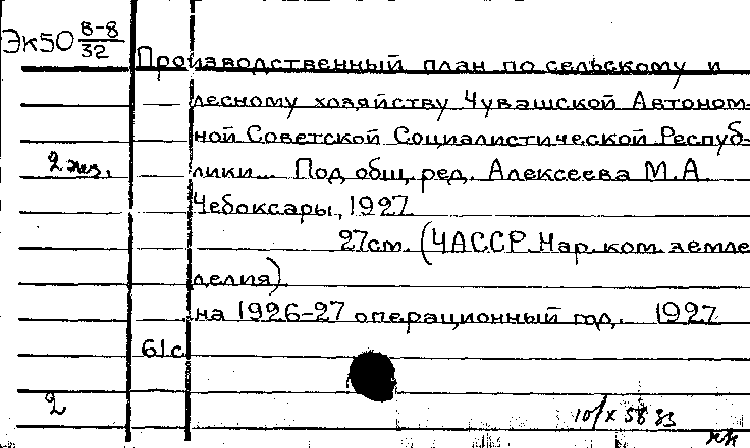 Эк50 8-8/32
Производственный план по сельскому и
лесному хозяйству Чувашской Автоном-
ной Советской Социалистической Респуб-
2 экз.
лики... Под общ. ред. Алексеева М.А.
Чебоксары, 1927.
27см. (ЧАССР. Нар. ком. земле
делия).
на 1926-27 операционный год. 1927
61с
2
10/X 58